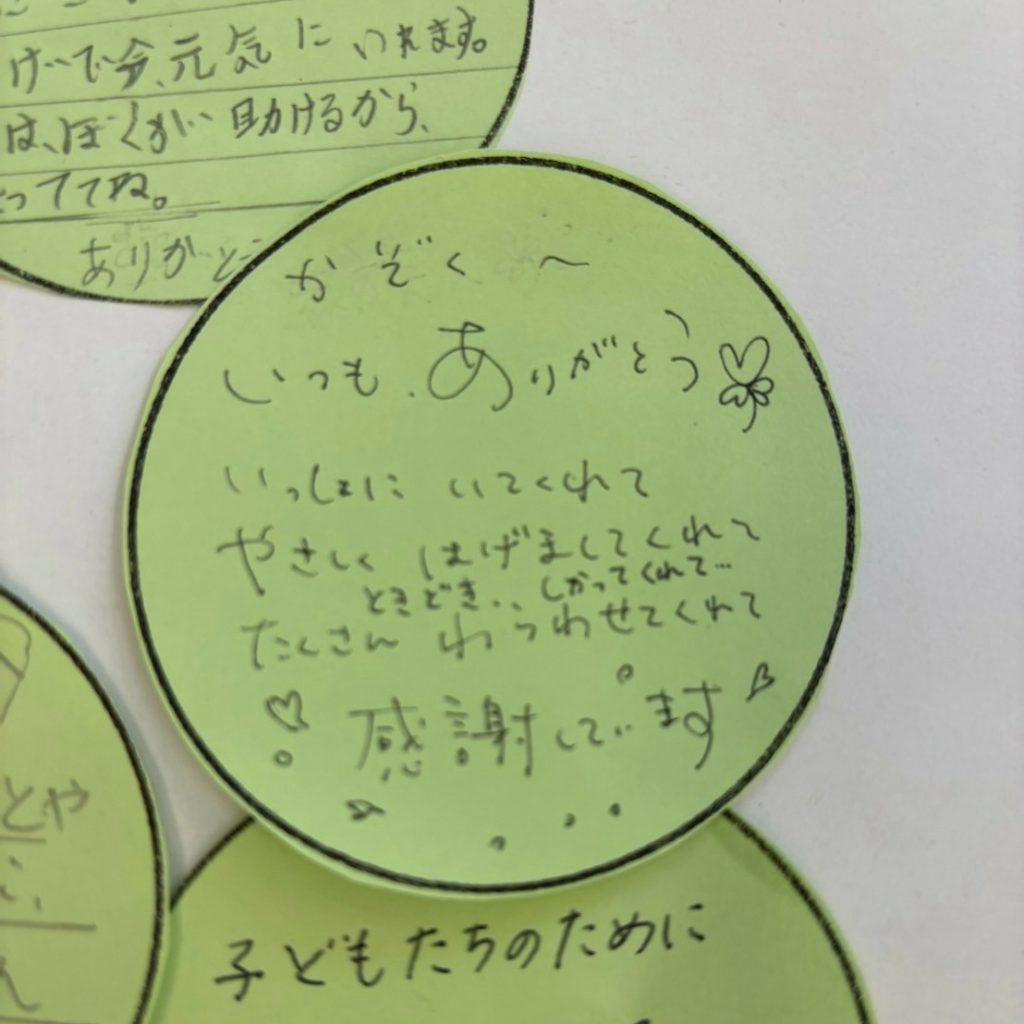 げで今、元気にいれます。
は、ぼくが助けるから、
っててね。
ありがと
かぞく〜
いつも、ありがとう
いっしょに いてくれて
やさしく はげましてくれて
ときどき.. しかってくれて...
たくさん わらわせてくれて
感謝してます
とや
に、
ん
子どもたちのために